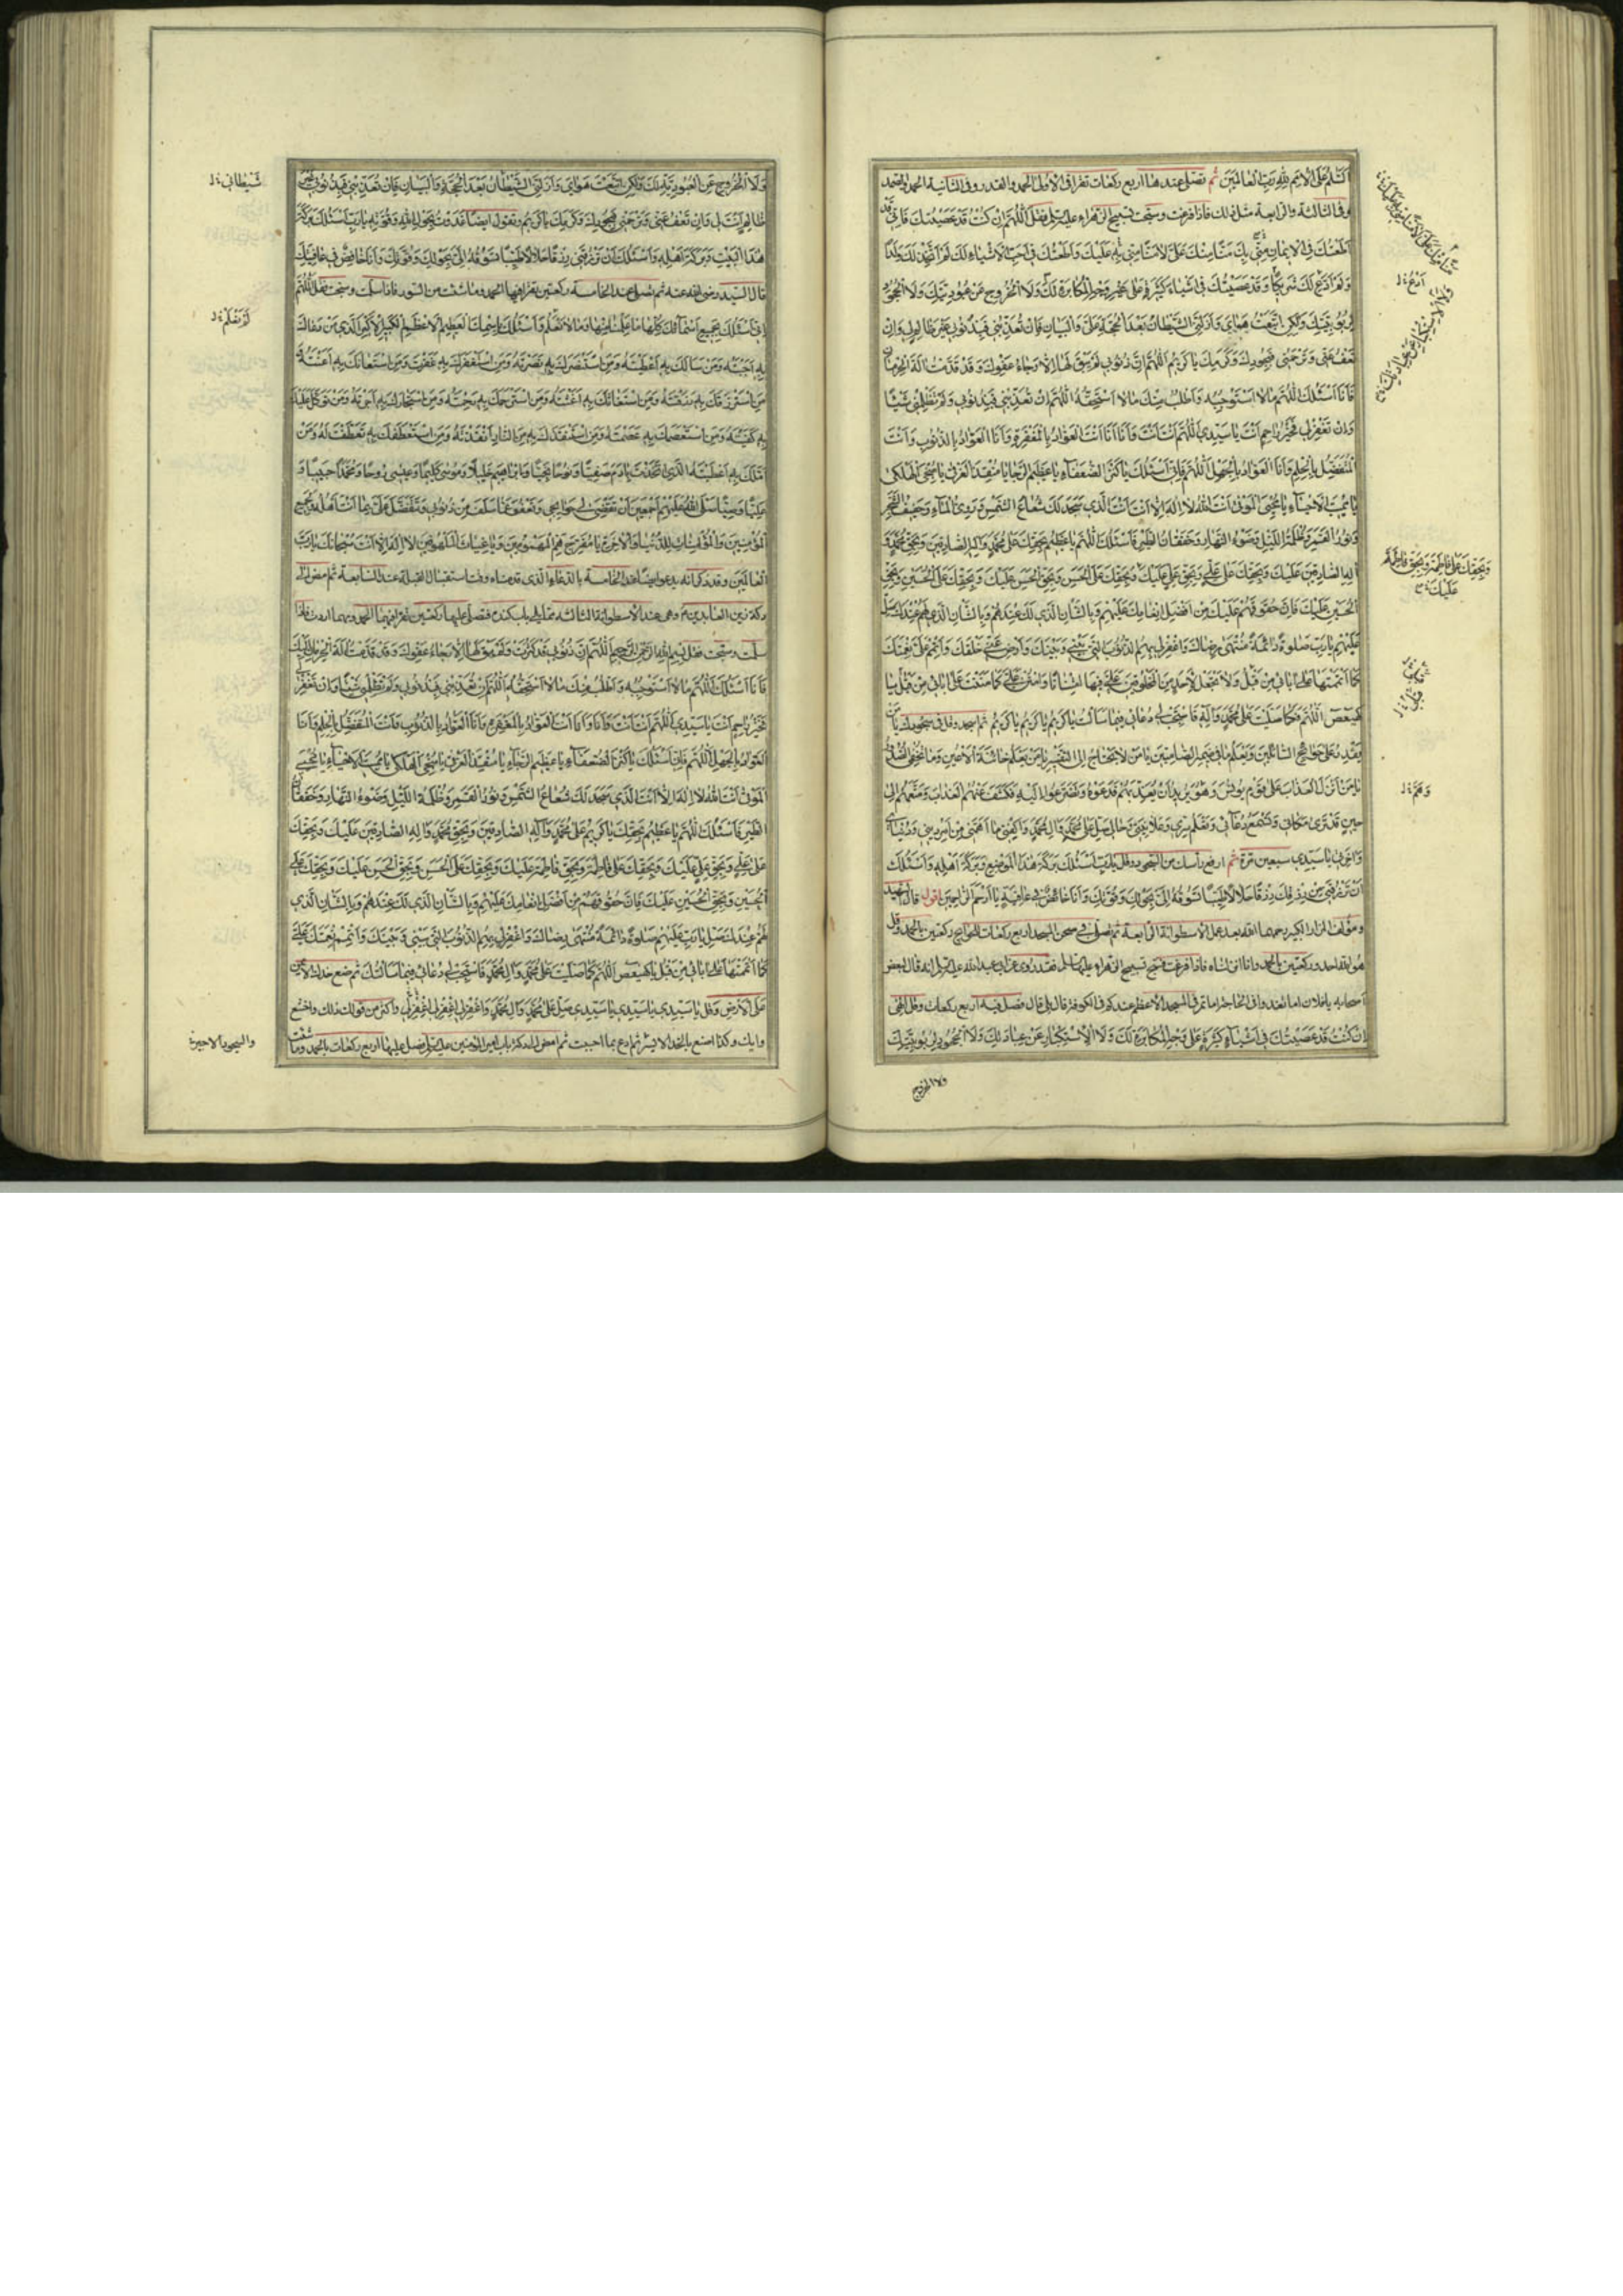 السلم على الامم لله رب العالمين ثم تصلى عندها اربع ركعات تقرا فى الاولى الحمد والقدر وفى الثانية الحمد والصمد
وفى الثالثة والرابعة مثل ذلك فاذا فرغت وسبحت تسبيح الزهراء عليها السلم فقل اللهم ان كنت قد عصيتك فانى قد
اطعتك فى الايمان منى بك منا منك على لا منا منى به عليك واطعتك فى احب الاشياء لك لم اتخذ لك ولدا
ولم ادع لك شريكا وقد عصيتك فى اشياء كثيرة على غير وجه المكابرة لك ولا الخروج عن عبوديتك ولا الجحود
لربوبيتك ولكن اتبعت هواى وازلنى الشيطان بعد الحجة على والبيان فان تعذبنى فبذنوبى غير ظالم لى وان
تعف عنى وترحمنى فبجودك وكرمك يا كريم اللهم ان ذنوبى لم يبق لها الا رجاء عفوك وقد قدمت الة الحرمان
فانا اسئلك اللهم ما لا استوجبه واطلب منك ما لا استحقه اللهم ان تعذبنى فبذنوبى ولم تظلمنى شيئا
وان تغفر لى فخير راحم انت يا سيدى اللهم انت انت وانا انا انت العواد بالمغفرة وانا العواد بالذنوب وانت
المتفضل بالحلم وانا العواد بالجهل اللهم فانى اسئلك يا كنز الضعفاء يا عظيم الرجا يا منقذ الغرقى يا منجى الهلكى
يا مميت الاحياء يا محيى الموتى انت الله لا اله الا انت انت الذى سجد لك شعاع الشمس ودوى الماء وحفيف الشجر
ونور القمر وظلمة الليل وضوء النهار وخفقان الطير فاسئلك اللهم يا عظيم بحقك على محمد واله الصادقين وبحق محمد و
اله الصادقين عليك وبحقك على على وبحق على عليك وبحقك على الحسن وبحق الحسن عليك وبحقك على الحسين وبحق
الحسين عليك فان حقوقهم عليك من افضل انعامك عليهم وبالشان الذى لك عندهم وبالشان الذى لهم عندك صل
عليهم يا رب صلوة دائمة منتهى رضاك واغفر لى بهم الذنوب التى بينى وبينك وارض عنى خلقك واتمم على نعمتك
كما اتممتها على ابائى من قبل ولا تجعل لاحد من المخلوقين على فيها امتنانا وامنن على كما مننت على ابائى من قبل يا
كهيعص اللهم فكما صليت على محمد واله فاستجب لى دعائى فيما سالت يا كريم يا كريم يا كريم ثم اسجد وقل فى سجودك يا من
يقدر على حوائج السائلين ويعلم ما فى ضمير الصامتين يا من لا يحتاج الى التفسير يا من يعلم خائنة الاعين وما تخفى الصدور
يا من انزل العذاب على قوم يونس وهو يريد ان يعذبهم فدعوه وتضرعوا اليه فكشف عنهم العذاب ومتعهم الى
حين قد ترى مكانى وتسمع دعائى وتعلم سرى وعلانيتى وحالى صل على محمد وال محمد واكفنى ما اهمنى من امر دينى ودنياى
واخرتى يا سيدى سبعين مرة ثم ارفع راسك من السجود وقل يا رب اسئلك بركة هذا الموضع وبركة اهله واسئلك
ان ترزقنى من رزقك رزقا حلالا طيبا تسوقه الى بحولك وقوتك وانا خائض فى عافية يا ارحم الراحمين اقول قال الشهيد
ومؤلف المزار الكبير رحمهما الله بعد عمل الاسطوانة الرابعة ثم تصلى فى صحن المسجد اربع ركعات للحوايج ركعتين بالحمد وقل
هو الله احد وركعتين بالحمد وانا انزلناه فاذا فرغت فسبح تسبيح الزهراء عليها السلم فقد روى عن ابى عبد الله عليه السلم انه قال لبعض
اصحابه يا فلان اما تغدو فى الحاجة اما تمر فى المسجد الاعظم عندكم فى الكوفة قال بلى قال فصل فيه اربع ركعات وقل الهى
ان كنت قد عصيتك فى اشياء كثيرة على وجه المكابرة لك ولا الاستكبار عن عبادتك ولا الجحود لربوبيتك
ولا الخروج
ادع خ ل
وبحقك على فاطمة وبحق فاطمة
عليك خ
ولا الخروج عن العبودية لك ولكن اتبعت هواى وازلنى الشيطان بعد الحجة والبيان فان تعذبنى فبذنوبى غير
ظالم انت لى وان تعف عنى وترحمنى فبجودك وكرمك يا كريم وتقول ايضا غدوت بحول الله وقوته يا رب اسئلك بركة
هذا البيت وبركة اهله واسئلك ان ترزقنى رزقا حلالا طيبا تسوقه الى بحولك وقوتك وانا خائض فى عافيتك
قال السيد رضى الله عنه ثم تصلى عند الخامسة ركعتين تقرا فيها الحمد وما شئت من السور فاذا سلمت وسبحت فقل اللهم
انى اسئلك بجميع اسمائك كلها ما علمنا منها وما لا نعلم واسئلك باسمك العظيم الاعظم الكبير الاكبر الذى من دعاك
به اجبته ومن سالك به اعطيته ومن استنصرك به نصرته ومن استغفرك به غفرت ومن استعانك به اعنته و
من استرزقك به رزقته ومن استغاثك به اغثته ومن استرحمك به رحمته ومن استجارك به اجرته ومن توكل عليك
به كفيته ومن استعصمك به عصمته ومن استنقذك به من النار انقذته ومن استعطفك به تعطفت له ومن
املك به اعطيته الذى اتخذت به ادم صفيا ونوحا نجيا وابراهيم خليلا وموسى كليما وعيسى روحا ومحمدا حبيبا و
عليا وصيا صلى الله عليهم اجمعين ان تقضى لى حوائجى وتعفو عما سلف من ذنوبى وتتفضل على بما انت اهله ولجميع
المؤمنين والمؤمنات للدنيا والاخرة يا مفرج هم المهمومين ويا غياث الملهوفين لا اله الا انت سبحانك يا رب
العالمين وقد ذكر انه يدعو ايضا عند الخامسة بالدعاء الذى قدمناه وقت استقبال القبلة عند السابعة ثم امض الى
دكة زين العابدين وهى عند الاسطوانة الثالثة مما يلى باب كندة فصل عليها ركعتين تقرا فيهما الحمد ومهما اردت فاذا
سلمت وسبحت فقل بسم الله الرحمن الرحيم اللهم ان ذنوبى قد كثرت ولم يبق لها الا رجاء عفوك وقد قدمت الة الحرمان اليك
فانا اسئلك اللهم ما لا استوجبه واطلب منك ما لا استحقه اللهم ان تعذبنى فبذنوبى ولم تظلمنى شيئا وان تغفر لى
فخير راحم انت يا سيدى اللهم انت انت وانا انا انت العواد بالمغفرة وانا العواد بالذنوب وانت المتفضل بالحلم وانا
العواد بالجهل اللهم فانى اسئلك يا كنز الضعفاء يا عظيم الرجاء يا منقذ الغرقى يا منجى الهلكى يا مميت الاحياء يا محيى
الموتى انت الله لا اله الا انت انت الذى سجد لك شعاع الشمس ونور القمر وظلمة الليل وضوء النهار وخفقان
الطير فاسئلك اللهم يا عظيم بحقك يا كريم على محمد واله الصادقين وبحق محمد واله الصادقين عليك وبحقك
على على وبحق على عليك وبحقك على فاطمة وبحق فاطمة عليك وبحقك على الحسن وبحق الحسن عليك وبحقك على
الحسين وبحق الحسين عليك فان حقوقهم من افضل انعامك عليهم وبالشان الذى لك عندهم وبالشان الذى
لهم عندك صل يا رب عليهم صلوة دائمة منتهى رضاك واغفر لى بهم الذنوب التى بينى وبينك واتمم نعمتك على
كما اتممتها على ابائى من قبل يا كهيعص اللهم كما صليت على محمد وال محمد فاستجب لى دعائى فيما سالتك ثم ضع خدك الايمن
على الارض وقل يا سيدى يا سيدى يا سيدى صل على محمد وال محمد واغفر لى اغفر لى اغفر لى واكثر من قولك ذلك واخشع
وابك وكذا اصنع بالخد الايسر ثم ادع بما احببت ثم امض الى دكة باب امير المؤمنين عليه السلم فصل عليها اربع ركعات بالحمد وما شئت
شيطانى خ ل
لم نعلم خ ل